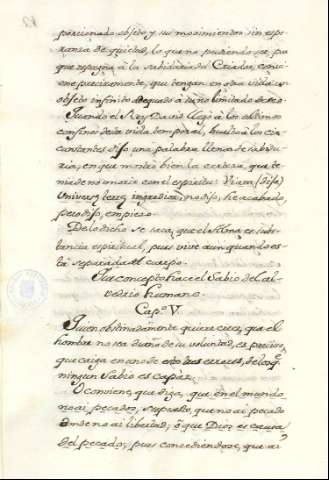 porcionado objeto, y su movimiento sin espe-
ranza de quietud, lo que no pudiendo ser, por
que repugna à la sabiduria del Criador, convi-
ene precisamente, que tengan en otra vida un
objeto infinito adequado à su no limitado deseo.
Quando el Rey David llegò à los ultimos
confines de esta vida temporal, buelto à los cir-
cunstantes dijo una palabra llena de sabidu-
ria, en que mostrò bien la certeza, que te-
nia de no morir con el espiritu: Viam (dijo)
Universæ terræ ingredior, no dijo, he acabado,
pero dijo, empiezo.
De lo dicho se saca, que el Alma es subs-
tancia espiritual, pues vive aun quando es-
tà separada del cuerpo.
concepto hace el Sabio del al-
vedrio humano.
Cap.º V.
Quien obstinadamente quiere creer, que el
hombre no sea dueño de su voluntad, es preciso,
que caiga en uno de estos dos errores, de los q.e
ningun Sabio es capaz.
O conviene, que diga, que en el mundo
no ai pecados, supuesto, que no ai pecado
donde no ai libertad; ò que Dios es causa
del pecado, pues concediendose, que ai